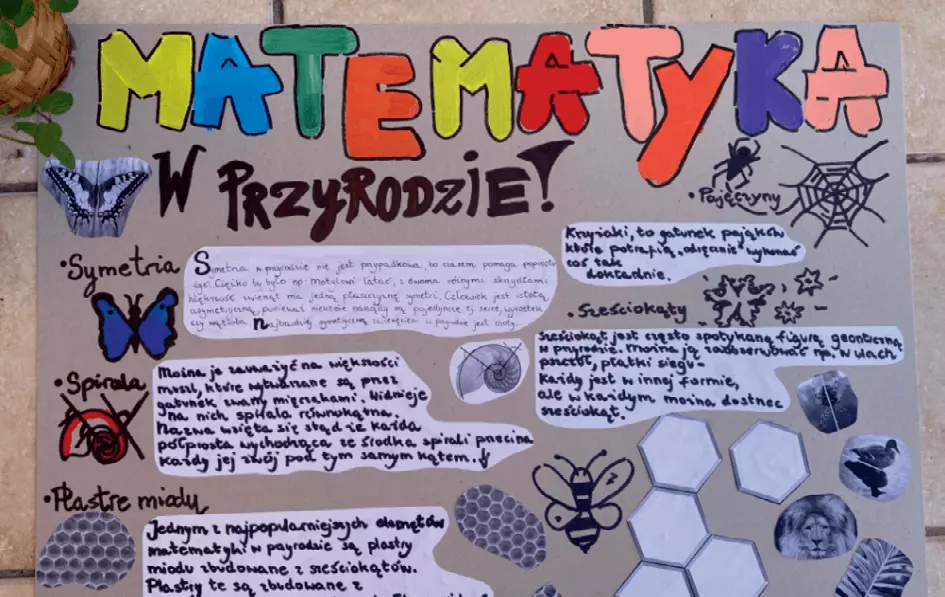 MATEMATYKA
W PRZYRODZIE!
•Pajęczyny
Krzyżaki, to gatunek pająków
które potrafią „odręcznie" wykonać
coś tak
dokładnie.
•Symetria
Symetria w przyrodzie nie jest przypadkowa, bo czasem pomaga poprostu
żyć. Ciężko by było np. Motylowi latać, z dwoma różnymi skrzydłami
Większość zwierząt ma jedną płaszczyznę symetri. Człowiek jest istotą
asymetryczną, ponieważ niektóre narządy są pojedyncze tj serce, wyrostek
czy wątroba. Najbardziej symetrycznym zwierzęciem w przyrodzie jest motyl.
•Sześciokąty
Sześciokąt jest często spotykaną figurą geomticzną
w przyrodzie. Można ją zaobserwować np. w ulach
pszczół, płatki śniegu-
Każdy jest w innej formie,
ale w każdym można dostrzec
sześciokąt.
•Spirala
Można je zauważyć na większości
muszl, które wytwarzane są przez
gatunek zwany mięczakami. Widnieje
na nich spirala równokątna.
Nazwa wzięta się stąd że każda
półprosta wychodząca ze środka spirali przecina
każdy jej zwój pod tym samym kątem.
•Plastre miodu
Jednym z najpopularniejszych elemętów
matematyki w przyrodzie są plastry
miodu zbudowane z sześciokątów.
Plastry te są zbudowane z